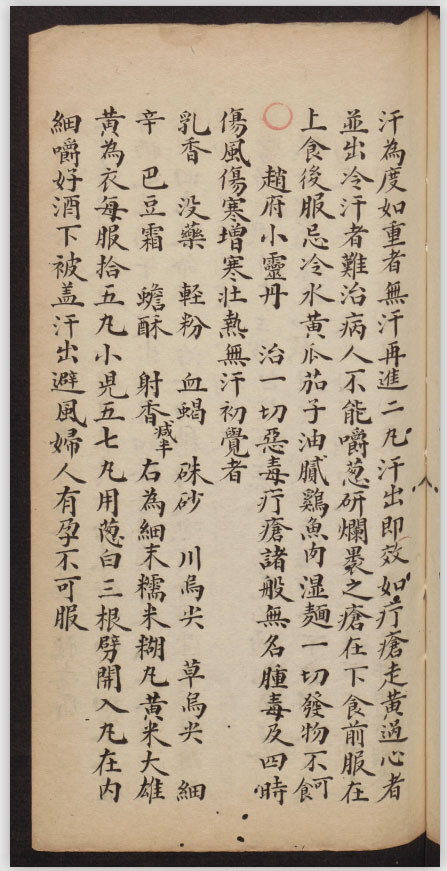 汗為度如重者無汗再進二丸汗出即效如疔瘡走黃過心者
並出冷汗者難治病人不能嚼葱研爛褁之瘡在下食前服在
上食後服忌冷水黃瓜茄子油膩鷄魚肉湿麵一切發物不可食
趙府小靈丹 治一切惡毒疔瘡諸般無名腫毒及四時
傷風傷寒增寒壯熱無汗初覺者
乳香 没藥 輊粉 血蝎 硃砂 川烏尖 草烏尖 細
辛 巴豆霜 蟾酥 射香減半 右為細末糯米糊丸黃米大雄
黃為衣每服拾五丸小児五七丸用葱白三根劈開入丸在内
細嚼好酒下被盖汗出避風婦人有孕不可服